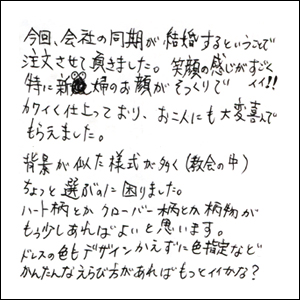 今回、会社の同期が結婚するということで
注文させて頂きました。笑顔の感じがすごく
イイ!!
特に新婦のお顔がそっくりで
カワイく仕上っており、お二人にも大変喜んで
もらえました。
背景が似た様式が多く(教会の中)
ちょっと選ぶのに困りました。
ハート柄とかクローバー柄とか柄物が
もう少しあればよいと思います。
ドレスの色もデザインかえずに色指定など
かんたんなえらび方があればもっとイイかな?